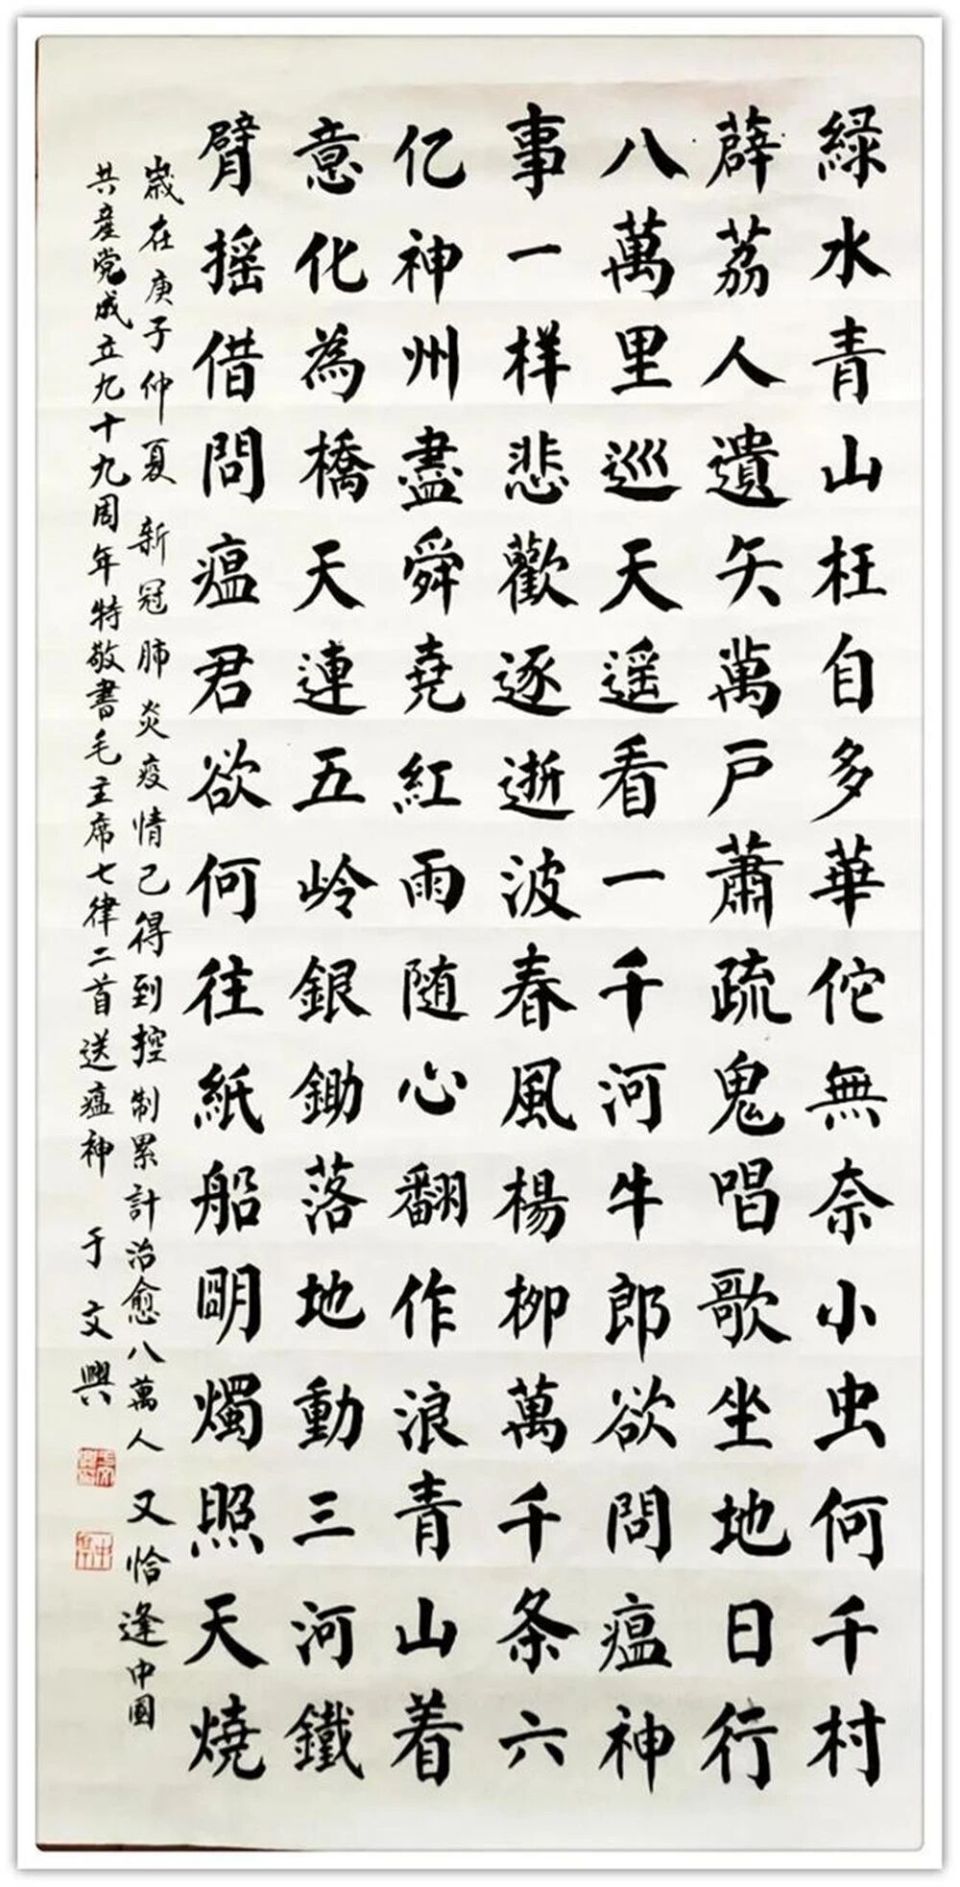 緑水青山枉自多華佗無奈小虫何千村
薜荔人遺矢萬戸蕭疏鬼唱歌坐地日行
八萬里巡天遥看一千河牛郎欲問瘟神
事一样悲歡逐逝波春風楊柳萬千条六
亿神州盡舜堯紅雨随心翻作浪青山着
意化為橋天連五岭銀鋤落地動三河鐵
臂摇借問瘟君欲何往紙船明燭照天燒
歲在庚子仲夏 新冠肺炎疫情已得到控制累計治愈八萬人又恰逢中國
共產党成立九十九周年特敬書毛主席七律二首送瘟神 于文興